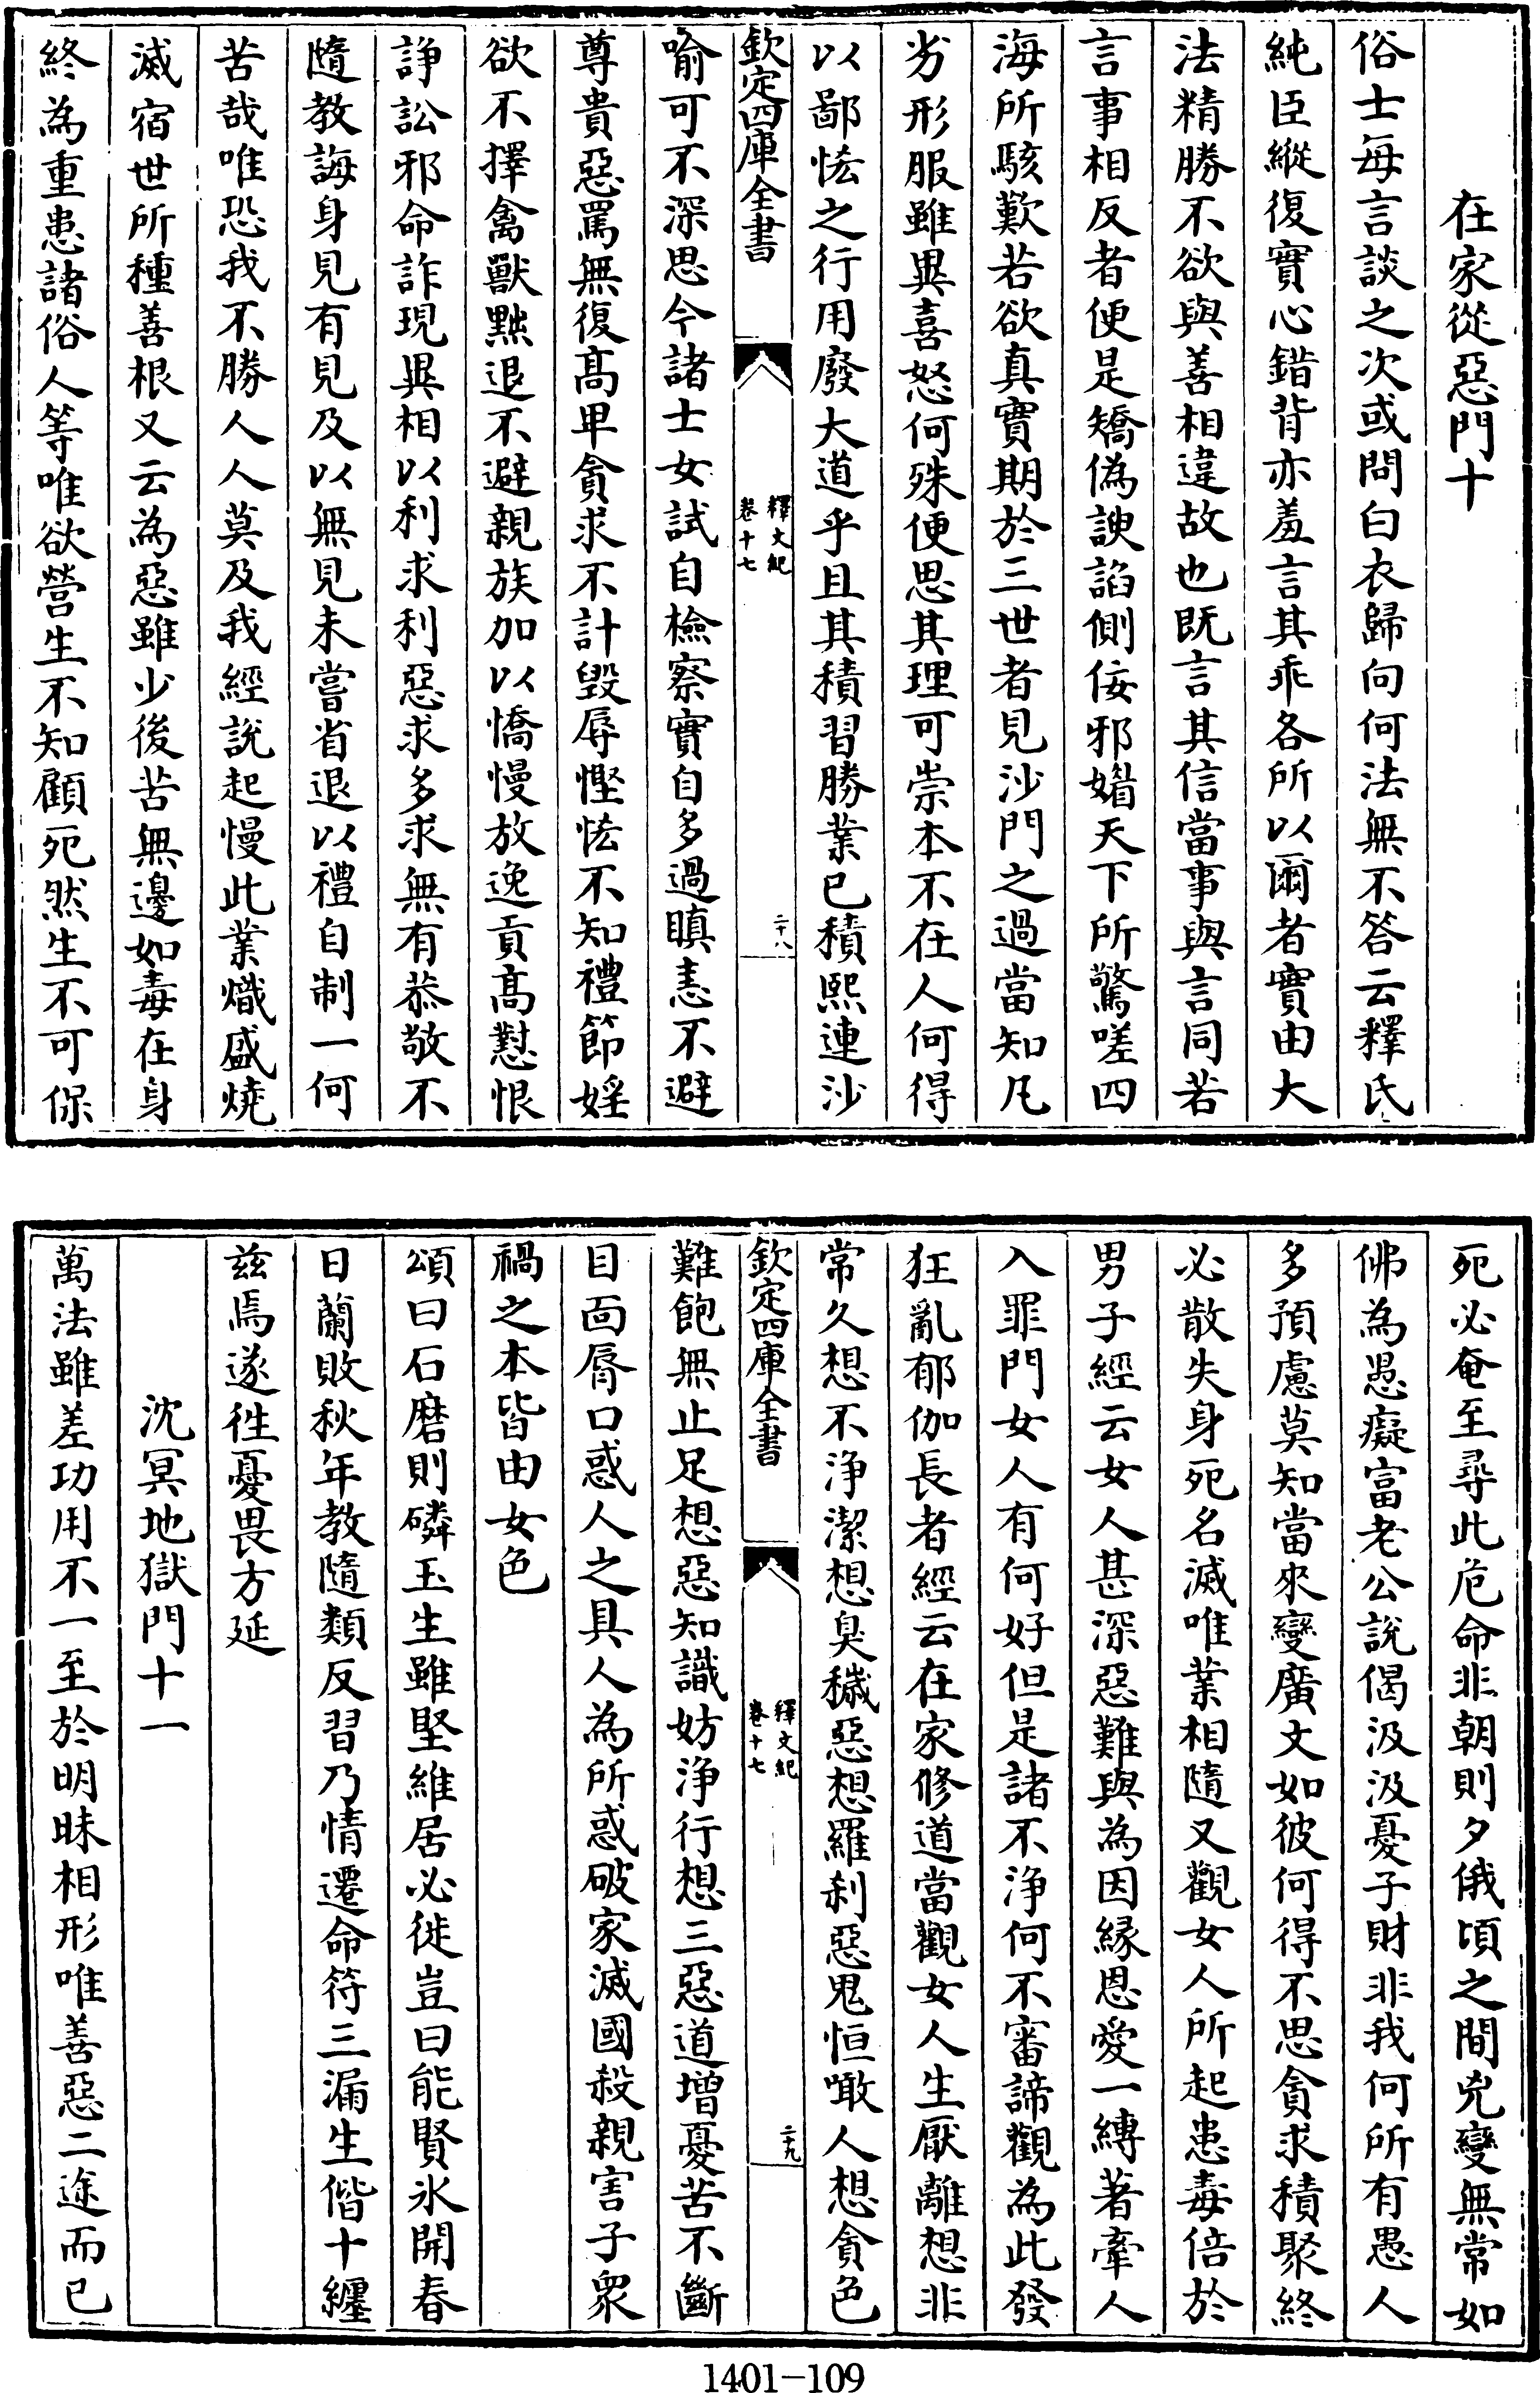 在家從惡門十
俗士每言談之次或問白衣歸向何法無不答云釋氏
純臣縱復實心錯背亦羞言其乖各所以爾者實由大
法精勝不欲與善相違故也既言其信當事與言同若
言事相反者便是矯偽諛諂側佞邪媚天下所驚嗟四
海所駭歎若欲真實期於三世者見沙門之過當知凡
劣形服雖異喜怒何殊便思其理可崇本不在人何得
以鄙恡之行用廢大道乎且其積習勝業已積熙連沙
欽定四庫全書
釋文紀
卷十七
二十八
喻可不深思今諸士女試自檢察實自多過瞋恚不避
尊貴惡罵無復髙卑貪求不計毀辱慳恡不知禮節婬
欲不擇禽獸㸃退不避親族加以憍慢放逸貢髙懟恨
諍訟邪命詐現異相以利求利惡求多求無有恭敬不
隨教誨身見有見及以無見未嘗省退以禮自制一何
苦哉唯恐我不勝人人莫及我經說起慢此業熾盛燒
滅宿世所種善根又云為惡雖少後苦無邊如毒在身
終為重患諸俗人等唯欲營生不知顧死然生不可保
死必奄至尋此危命非朝則夕俄頃之間兇變無常如
佛為愚癡富老公說偈汲汲憂子財非我何所有愚人
多預慮莫知當來變廣文如彼何得不思貪求積聚終
必散失身死名滅唯業相隨又觀女人所起患毒倍於
男子經云女人甚深惡難與為因縁恩愛一縛著牽人
入罪門女人有何好但是諸不淨何不審諦觀為此發
狂亂郁伽長者經云在家修道當觀女人生厭離想非
常久想不淨潔想臭穢惡想羅刹惡鬼恒噉人想貪色
欽定四庫全書
釋文紀
卷十七
二十九
難飽無止足想惡知識妨淨行想三惡道增憂苦不斷
目面脣口惑人之具人為所惑破家滅國殺親害子衆
禍之本皆由女色
頌曰石磨則磷玉生雖堅維居必徙豈曰能賢氷開春
日蘭敗秋年教隨類反習乃情遷命符三漏生偕十纏
兹焉遂徃憂畏方延
沈冥地獄門十一
萬法雖差功用不一至於明昧相形唯善惡二途而已
1401-109